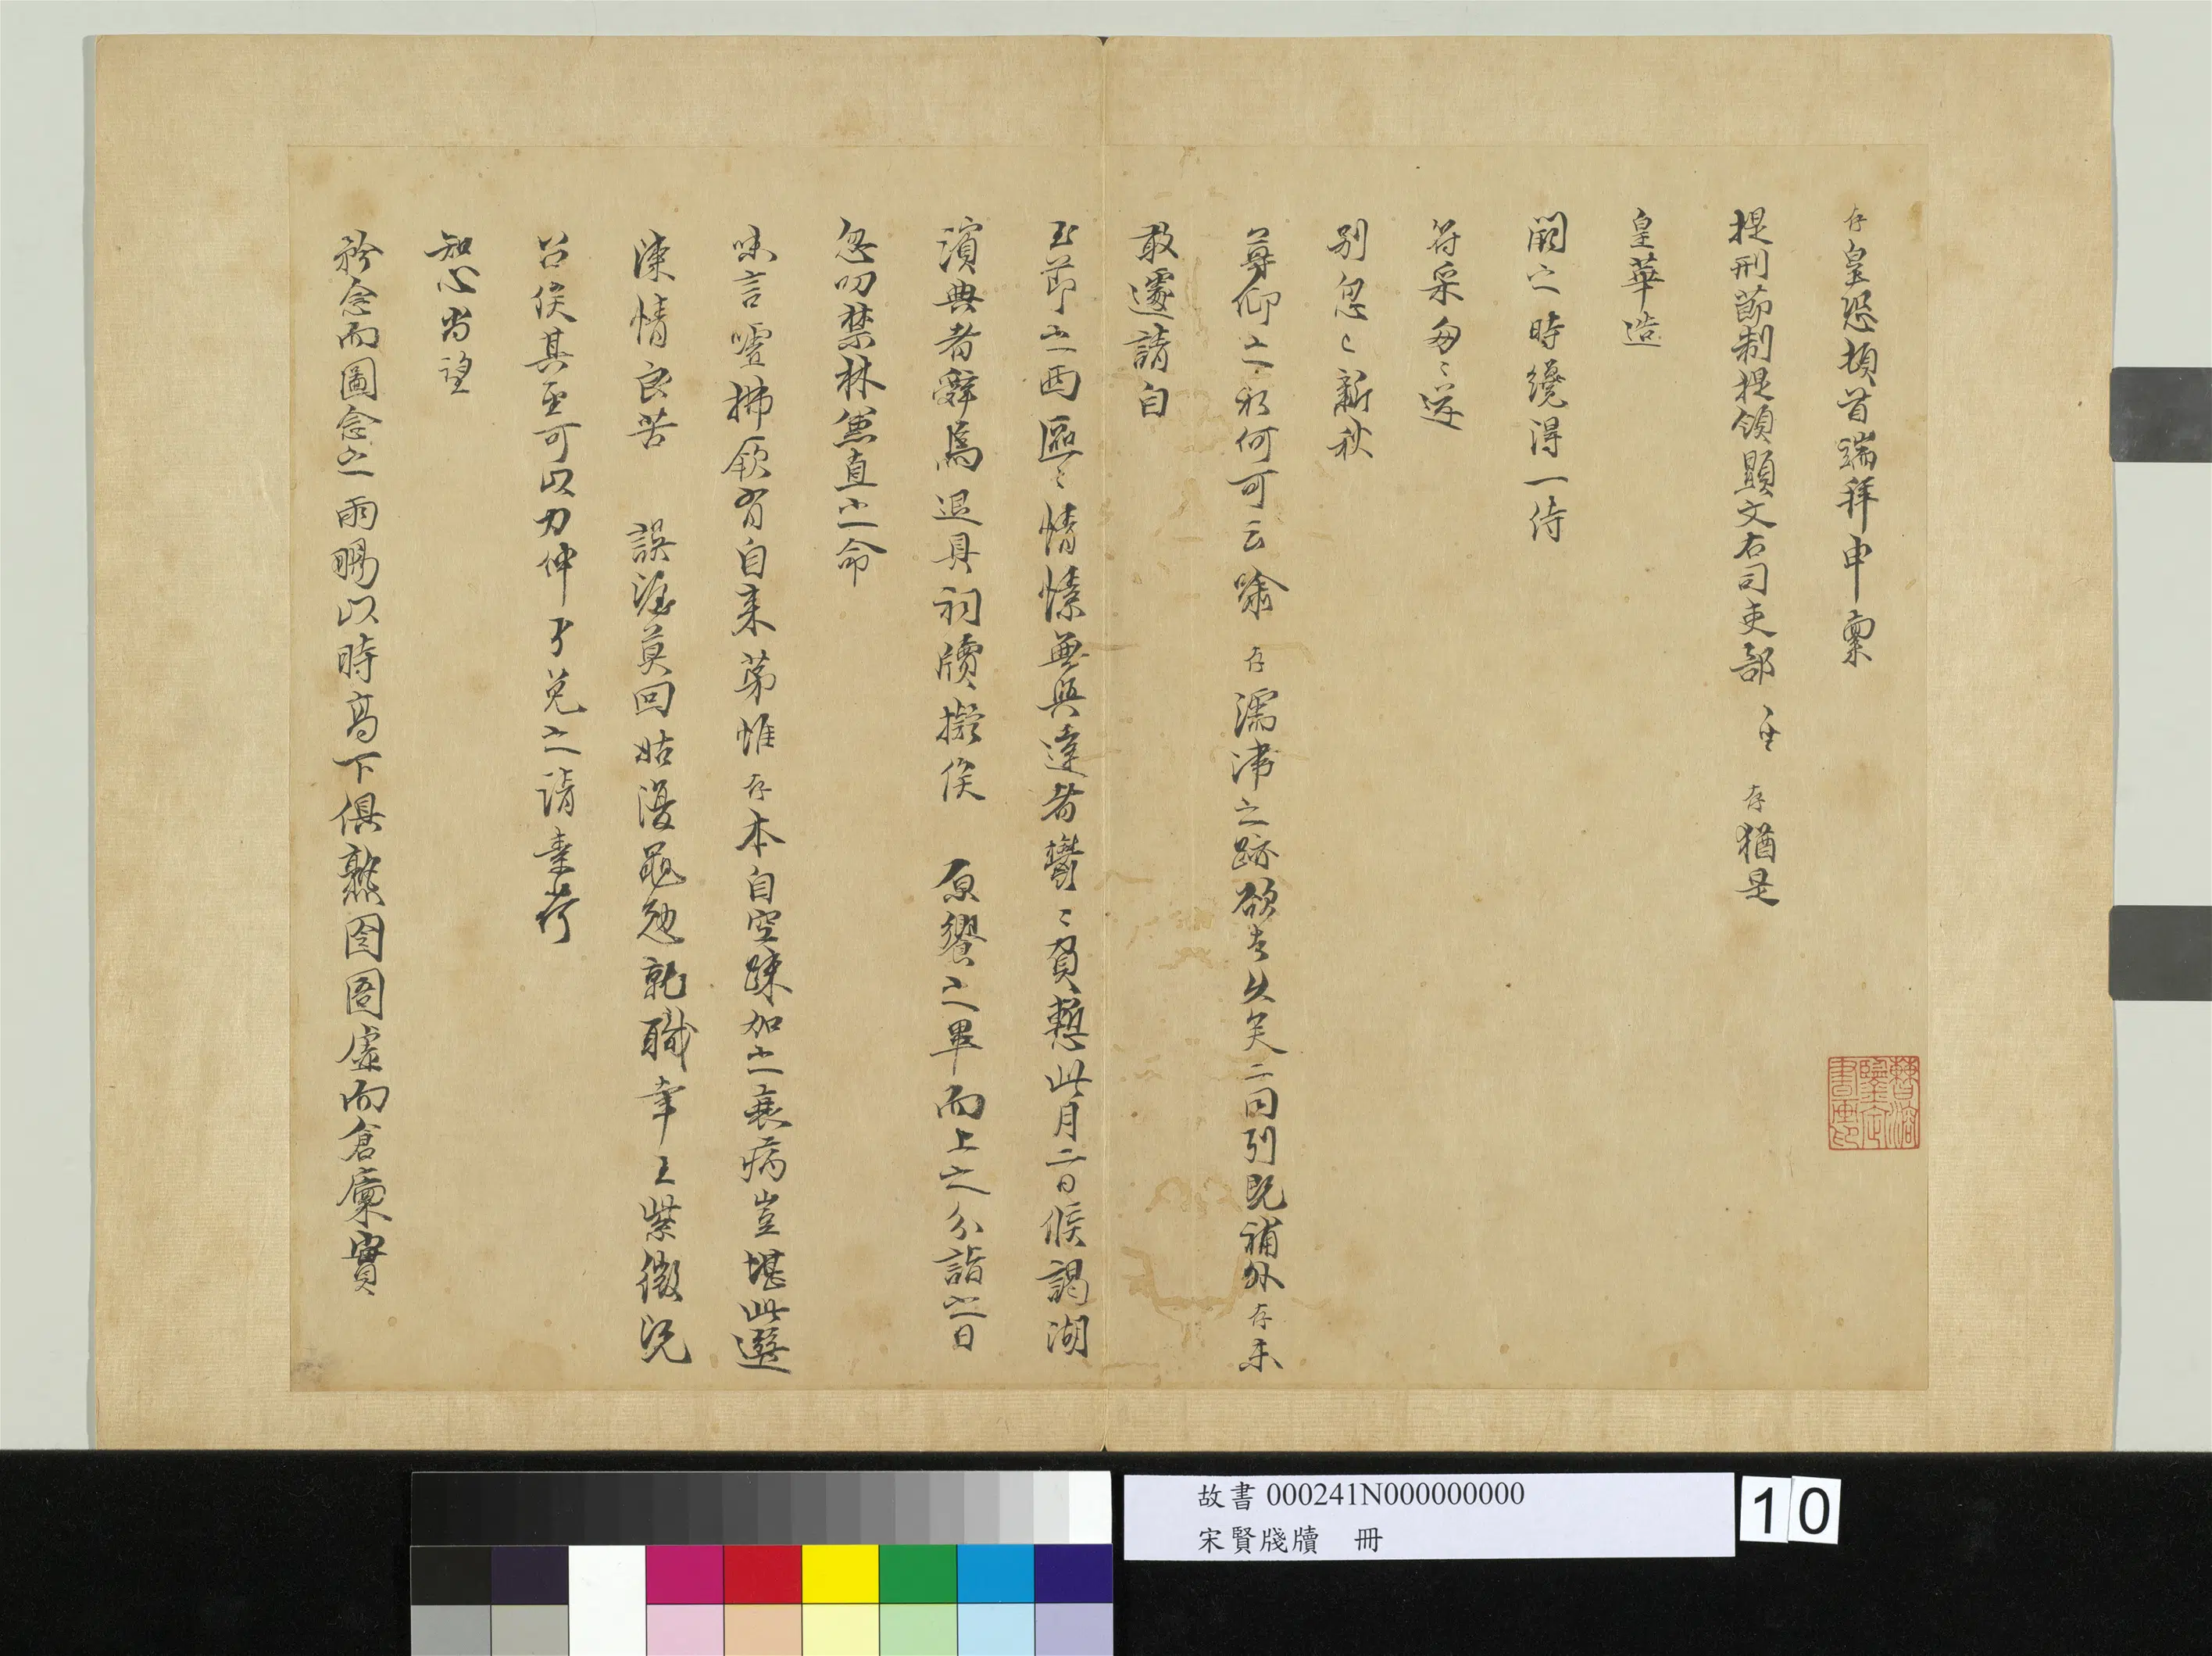 存皇恐頓首端拜申稟
提刑節制提領顯文右司吏部 存猶是
皇華造
闕之時纔得一侍
符采匆匆送
別忽忽新秋
尊仰之私何可云喻 存濡滯之跡欲去久矣二同列既補外存未
敢遽請自
玉節之西區區情愫無與達者鬱鬱負慙此月二日候謁湖
濱典者辭焉退具祠牘擬俟 原饗之畢而上之分詣之日
忽叨禁林兼直之命
味言噓拂厥有自來第惟存本自空疎加之衰病豈堪此選
陳情良苦 誤渥莫回姑復黽勉就職幸王紫微既
召俟其至可以力伸 丐免之請素荷
知心尚望
矜念而圖念之雨暘以時高下俱熟囹圄虛而倉廩實
故書 000241N000000000
宋賢牋牘 冊
10